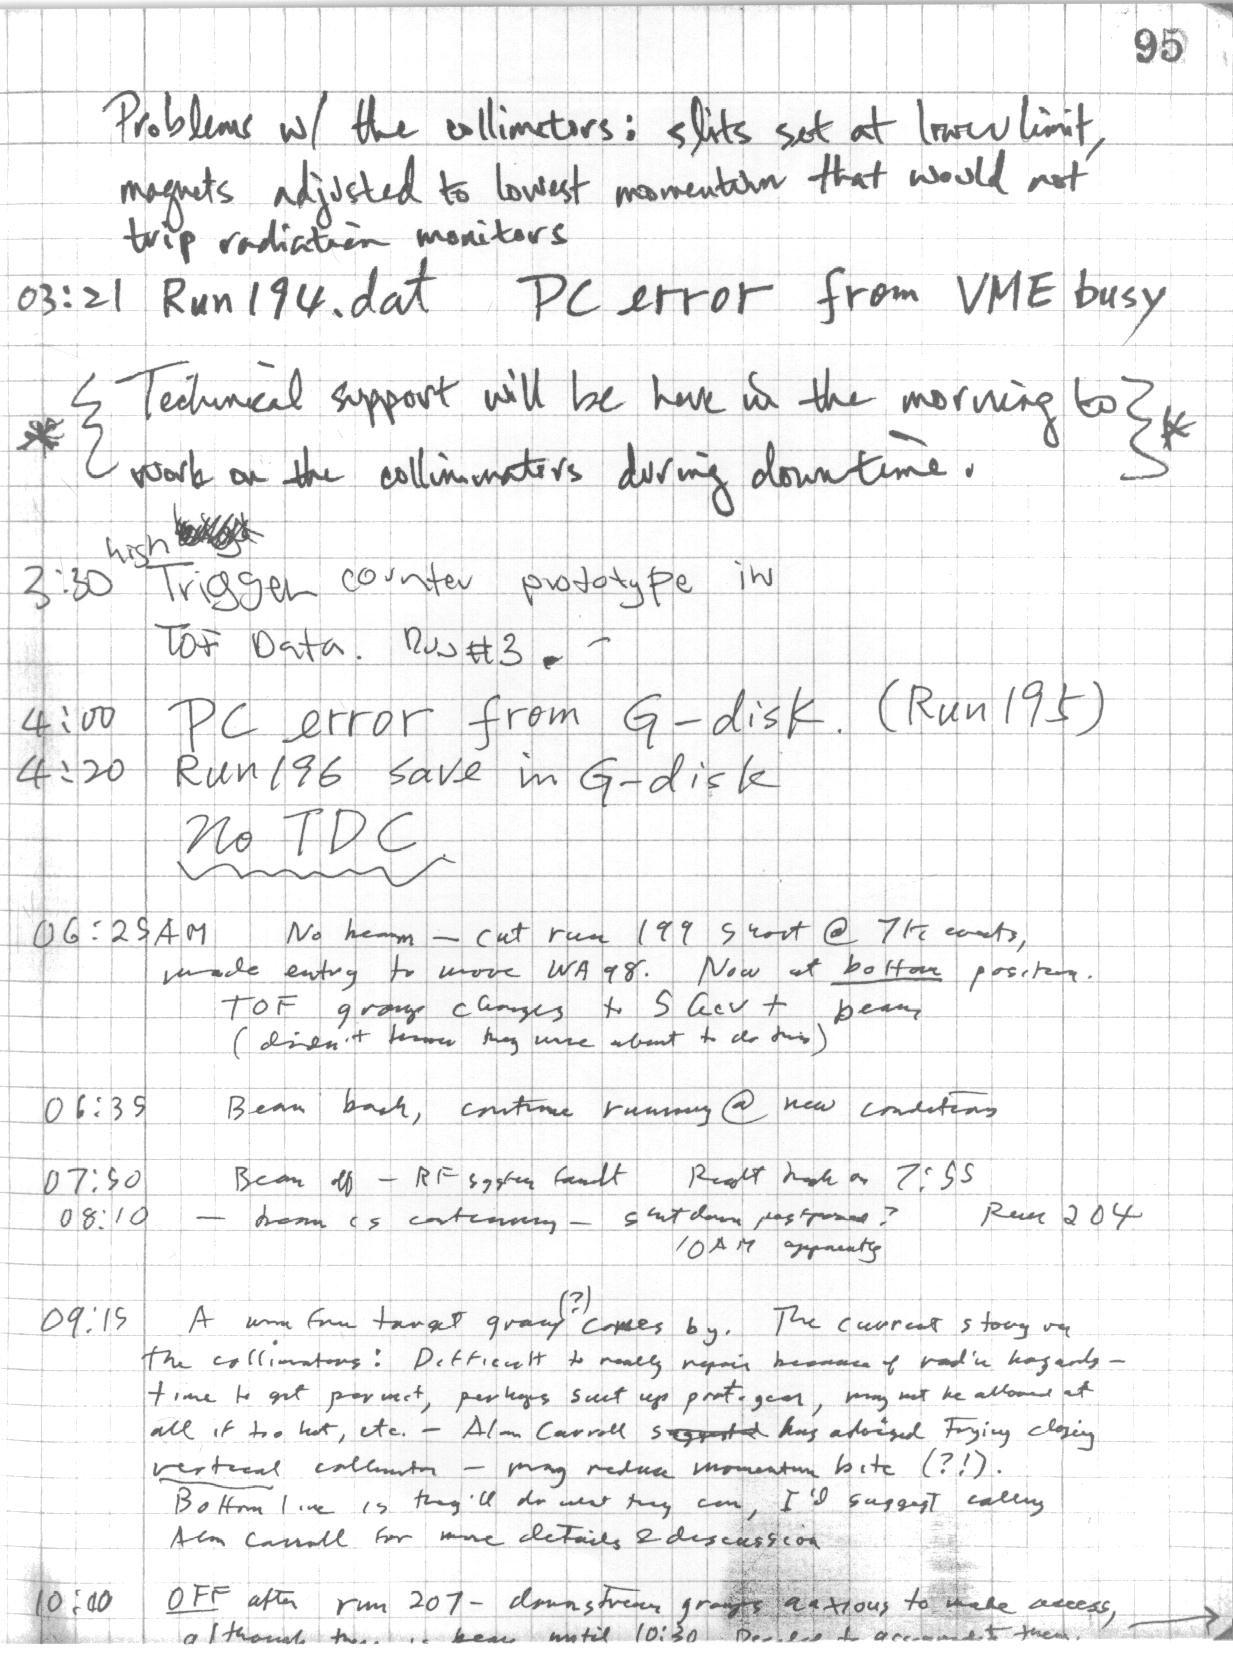 95
Problems w/ the collimators: slits set at lower limit,
magnets adjusted to lowest momentum that would not
trip radiation monitors
03:21 Run194.dat PC error from VME busy
* { Technical support will be here in the morning to } *
work on the collimators during downtime.
high
3:30 Trigger counter prototype in
TOF Data. Run #3.
4:00 PC error from G-disk. (Run195)
4:20 Run196 save in G-disk
No TDC
06:25AM No beam – cut run 199 short @ 7k events,
made entry to move WA98. Now at bottom position.
TOF group changes to 5 GeV + beam
(didn't know they were about to do this)
06:35 Beam back, continue running @ new conditions
07:50 Beam off – RF system fault Right back on 7:55
08:10 – beam is continuing – shutdown postponed? Run 204
10AM apparently
09:15 A man from target group (?) comes by. The current story on
the collimators: Difficult to really repair because of rad'n hazards –
time to get permit, perhaps suit up prot. gear, may not be allowed at
all if too hot, etc. – Alan Carroll has advised trying closing
vertical collimator – may reduce momentum bite (?!).
Bottom line is they'll do what they can, I'd suggest calling
Alan Carroll for more details & discussion
10:00 OFF after run 207 – downstream groups anxious to make access,
although there is beam until 10:30 Decided to accommodate them.